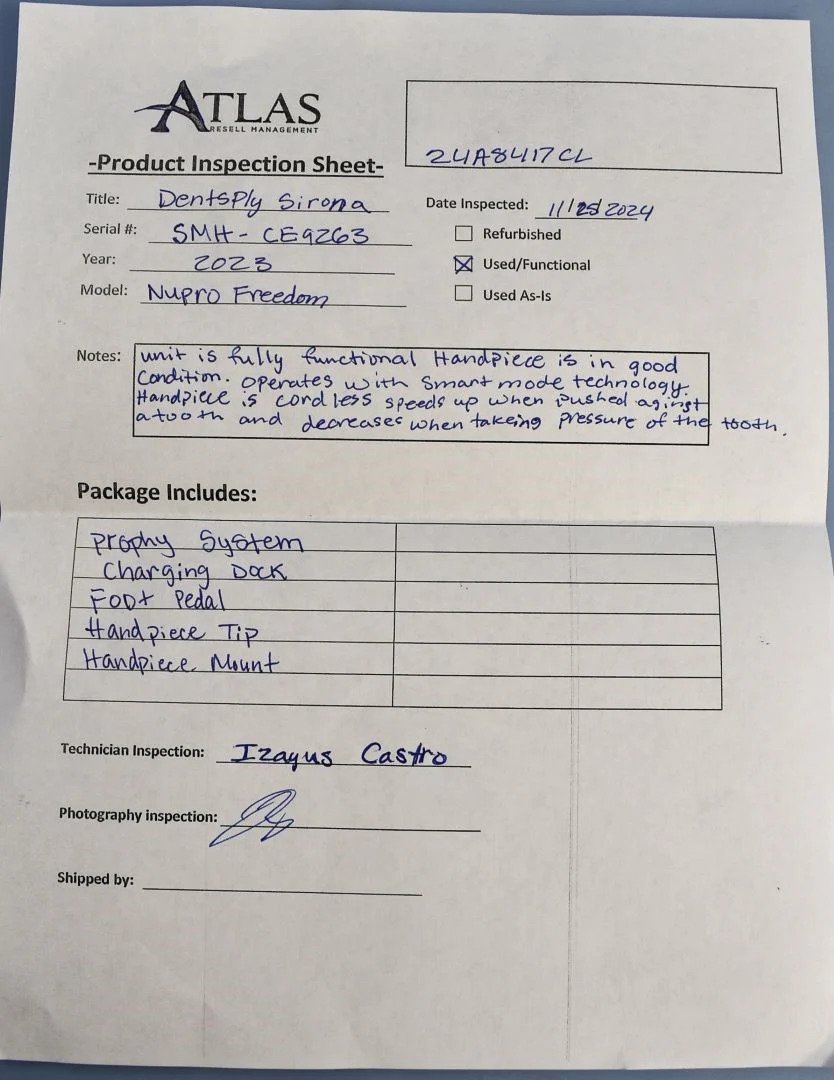 ATLAS
RESELL MANAGEMENT
24A8417CL
-Product Inspection Sheet-
Title: Dentsply Sirona
Date Inspected: 11/25/2024
Serial #: SMH-CE9263
Refurbished
Year: 2023
Used/Functional
Model: Nupro Freedom
Used As-Is
Notes: unit is fully functional Handpiece is in good
Condition. operates with smart mode technology.
Handpiece is cordless speeds up when pushed aginst
a tooth and decreases when takeing pressure of the tooth.
Package Includes:
Prophy System
Charging Dock
Foot Pedal
Handpiece Tip
Handpiece Mount
Technician Inspection: Izayus Castro
Photography inspection:
Shipped by: